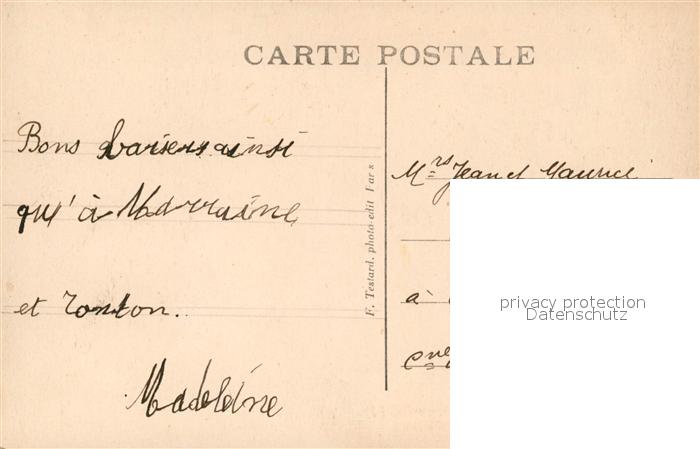 CARTE POSTALE
Bons baisers ainsi
qu'à Marraine
et Tonton.
Madeleine
F. Testard, photo-edit Fars
Mrs Jean et Maurice
à
privacy protection
Datenschutz